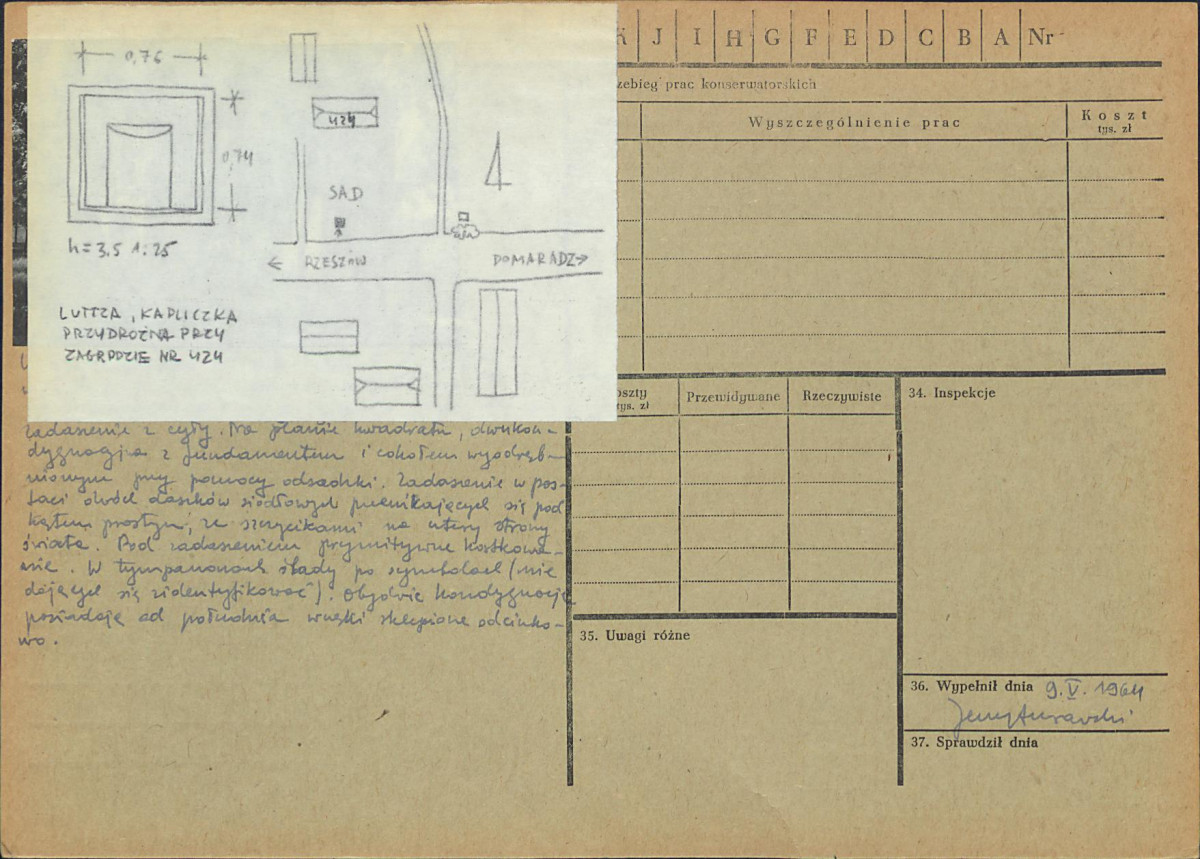 0,76
0,74
h = 3.5 1:25
LUTCZA, KAPLICZKA
PRZYDROŻNA PRZY
ZAGRODZIE NR 424
424
SAD
← RZESZÓW
DOMARADZ →
K J I H G F E D C B A Nr
zebieg prac konserwatorskich
Wyszczególnienie prac
Koszt
tys. zł
oszty
tys. zł
Przewidywane
Rzeczywiste
34. Inspekcje
zadaszenie z cyny. Na planie kwadratu, dwukon-
dygnacyjna z fundamentem i cokołem wyodręb-
nionym przy pomocy odsadzki. Zadaszenie w pos-
taci dwóch daszków siodłowych przenikających się pod
kątem prostym, ze szczycikami na cztery strony
świata. Pod zadaszeniem prymitywne kostkowa-
nie. W tympanonach ślady po symbolach (nie
dających się zidentyfikować). Obydwie kondygnacje
posiadają od południa wnęki sklepione odcinko-
wo.
35. Uwagi różne
36. Wypełnił dnia 9.V.1964
37. Sprawdził dnia